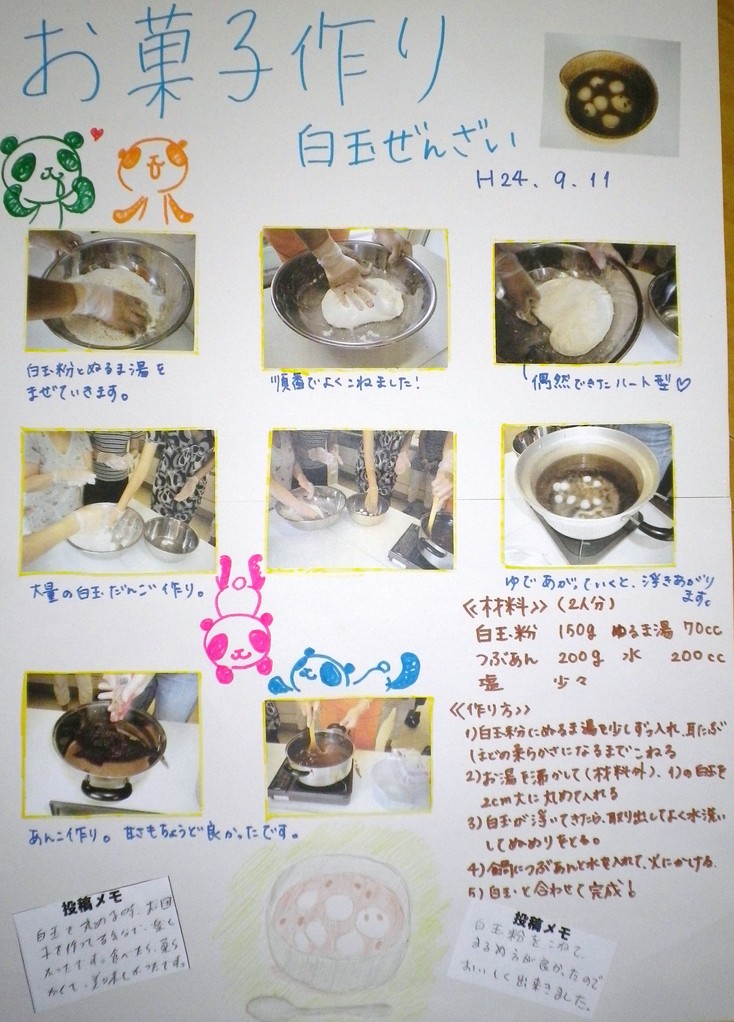 お菓子作り
白玉ぜんざい
H24.9.11
白玉粉とぬるま湯を
まぜていきます。
順番でよくこねました！
偶然できたハート型♡
大量の白玉だんご作り。
ゆであがっていくと、浮きあがり
ます。
≪材料≫ (2人分)
白玉粉 150g ぬるま湯 70cc
つぶあん 200g 水 200cc
塩 少々
≪作り方≫
1)白玉粉にぬるま湯を少しずつ入れ、耳たぶ
ほどの柔らかさになるまでこねる
2)お湯を沸かして(材料外)、1)の白玉を
2cm大に丸めて入れる
3)白玉が浮いてきたら、取り出してよく水洗い
してぬめりをとる。
4)鍋につぶあんと水を入れて、火にかける。
5)白玉と合わせて完成！
あんこ作り。甘さもちょうど良かったです。
投稿メモ
白玉を丸めるのが、お団
子を作ってるみたいで、楽し
かったです。食べたら、柔ら
かくて、美味しかったです。
投稿メモ
白玉粉をこねて、
まるめ方が良かったので
おいしく出来ました。